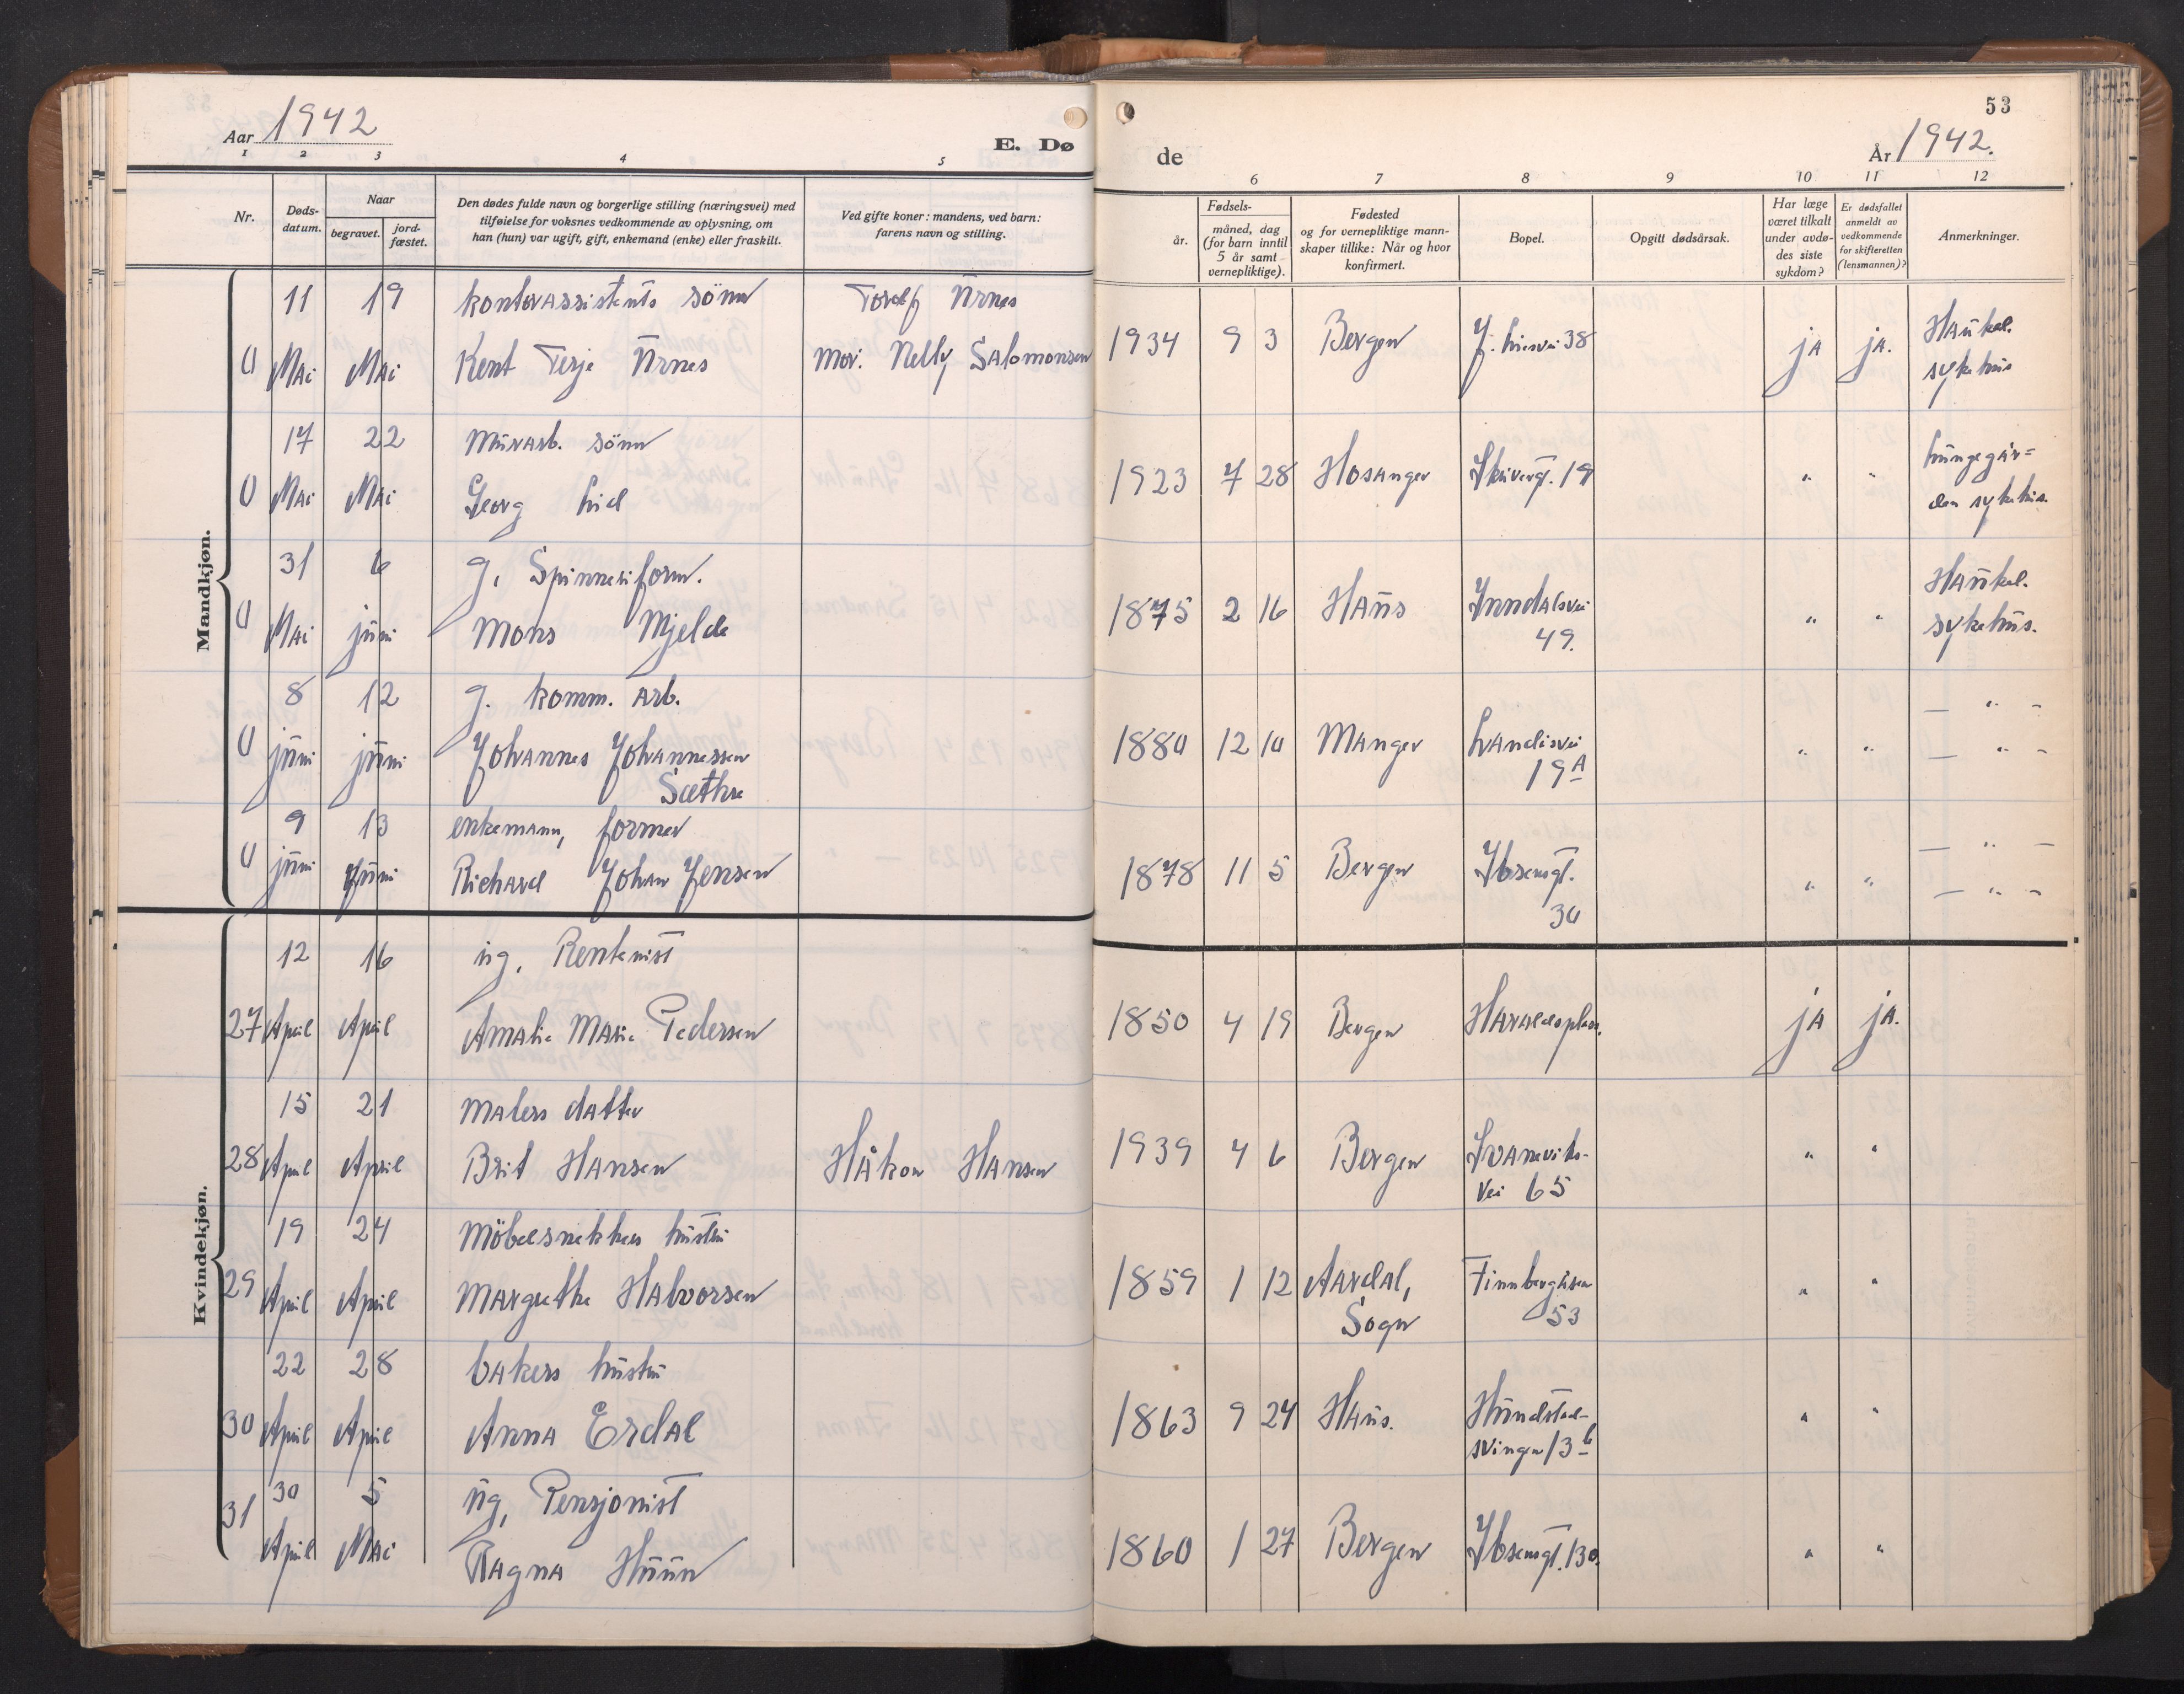 Aar 1942
E. Dø
1 2 3 4 5
Nr.
Døds-
datum.
Naar
begravet.
jord-
fæstet.
Den dødes fulde navn og borgerlige stilling (næringsvei) med
tilføielse for voksnes vedkommende av oplysning, om
han (hun) var ugift, gift, enkemand (enke) eller fraskilt.
Ved gifte koner: mandens, ved barn:
farens navn og stilling.
Mandkjøn.
11 19 kontorassistents sönn Torolf Årnes
U Mai Mai Kent Terje Årnes Mor: Nelly Salomonsen
17 22 Murarb. sönn
U Mai Mai Georg Lid
31 6 g. Spinneriform.
U Mai juni Mons Mjelde
8 12 g. komm. arb.
U juni juni Johannes Johannessen
Sæthre
9 13 enkemann, former
U juni Juni Richard Johan Jensen
Kvindekjøn.
12 16 ug. Rentenist
27 April April Amalie Marie Pedersen
15 21 Malers datter
28 April April Brit Hansen Håkon Hansen
19 24 Möbelsnekkers hustru
29 April April Margrethe Halvorsen
22 28 bakers hustru
30 April April Anna Erdal
30 5 ug, Pensjonist
31 April Mai Ragna Huun
53
de
År 1942.
6 7 8 9 10 11 12
Fødsels-
år.
måned, dag
(for barn inntil
5 år samt
vernepliktige).
Fødested
og for vernepliktige mann-
skaper tillike: Når og hvor
konfirmert.
Bopel.
Opgitt dødsårsak.
Har læge
været tilkalt
under avdø-
des siste
sykdom?
Er dødsfallet
anmeldt av
vedkommende
for skifteretten
(lensmannen)?
Anmerkninger.
Haukel.
1934 9 3 Bergen J. Liesvei 38 ja ja.
sykehus
Lungegår=
1923 7 28 Hosanger Skiverg. 19 " "
den sykehus.
Haukel.
1875 2 16 Haus Inndalsvei " " sykehus.
49.
— " —
1880 12 10 Manger Landåsvei " " — " —
19A
— " —
1878 11 5 Bergen Ibsensgt. " " — " —
30
1850 4 19 Bergen Haraldsplass. ja ja.
1939 4 6 Bergen Svaneviks- " "
vei 65
1859 1 12 Aardal, Finnbergåsen " "
Sogn 53
1863 9 24 Haus. Hundstad- " "
svingen 13b
1860 1 27 Bergen Ibsensgt. 130. " "